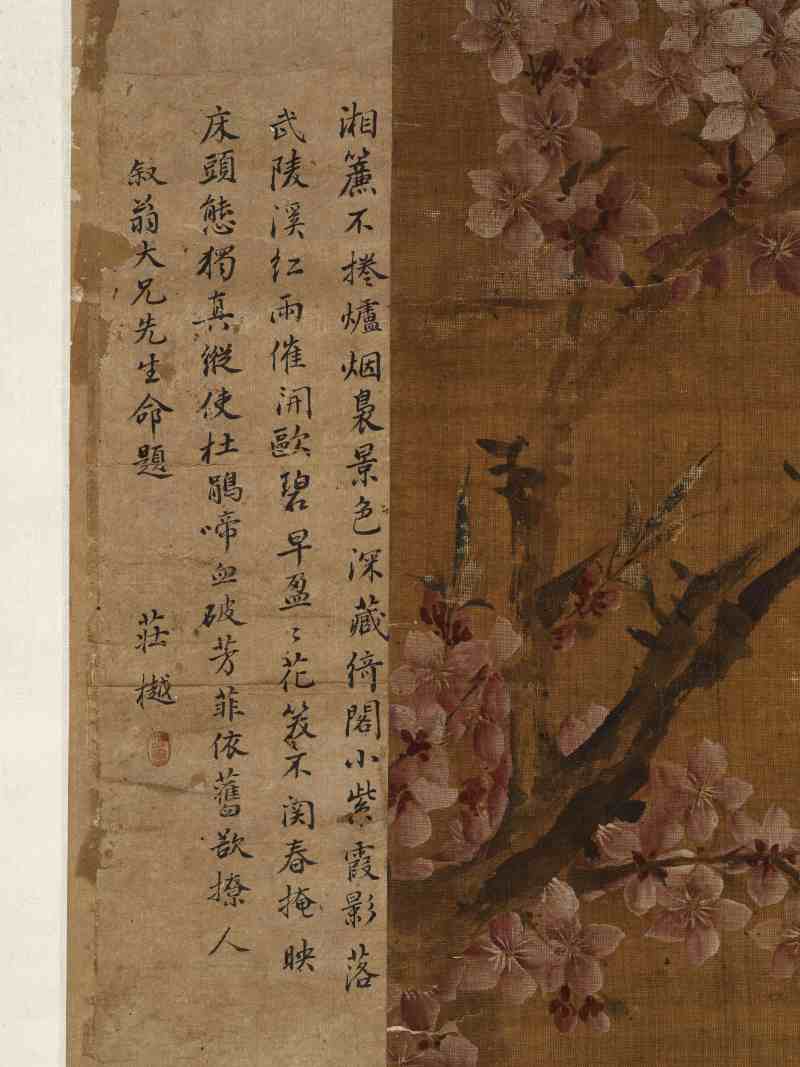 湘簾不捲爐烟裊景色深藏倚閣小紫霞影落
武陵溪紅雨催開歐碧早盈〻花笑不関春掩映
床頭態獨真縱使杜鵑啼血破芳菲依舊欲撩人
叙翁大兄先生命題
莊樾